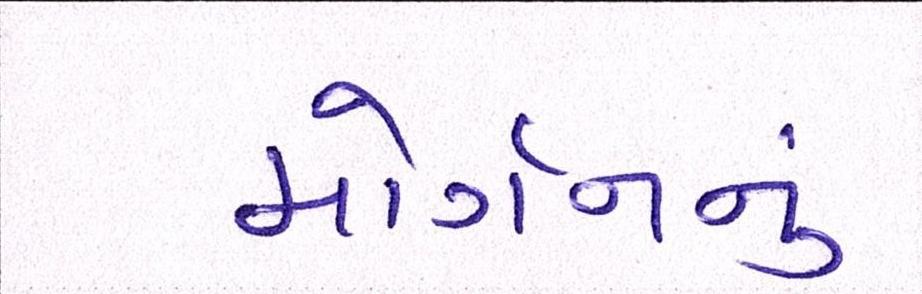 મોર્ગનનું